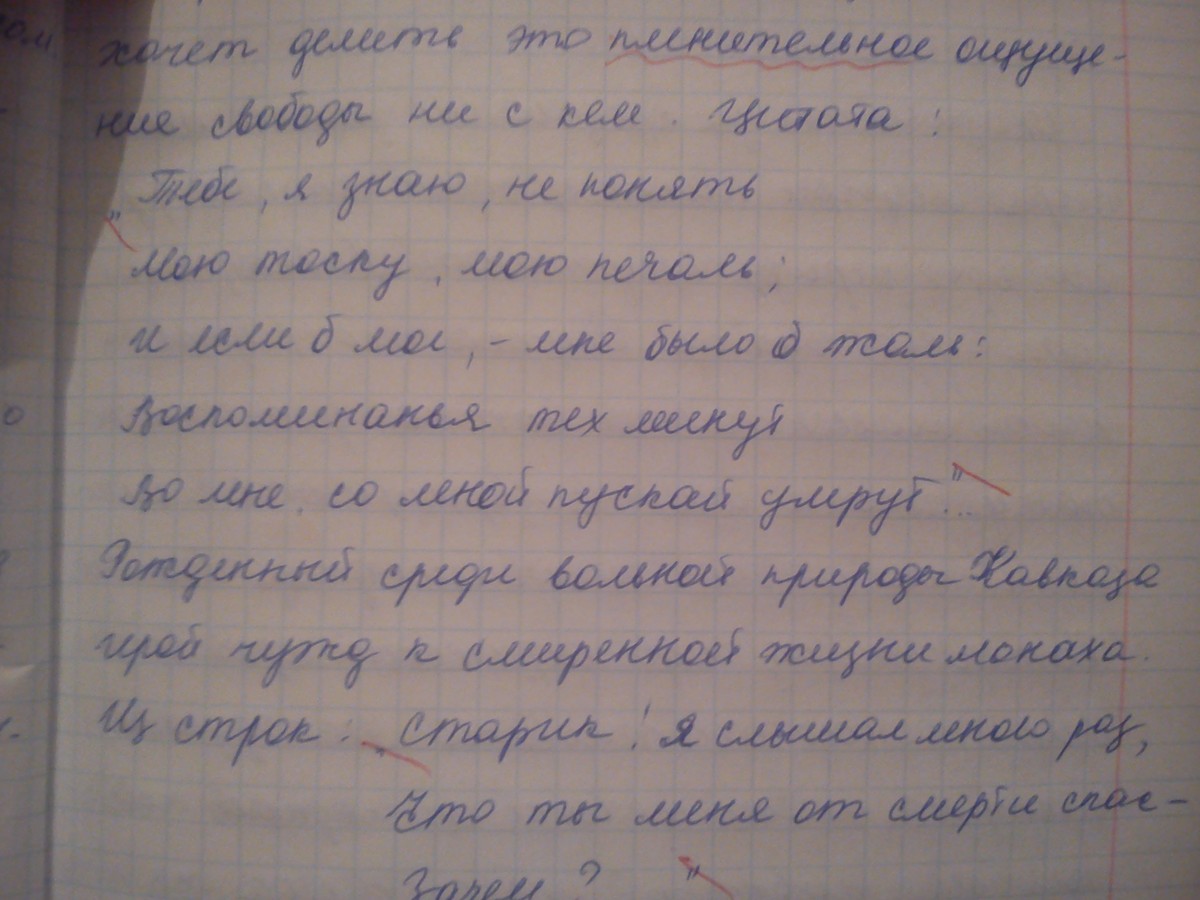 хочет делить это пленительное ощуще-
ние свободы ни с кем. Цитата:
„Тебе, я знаю, не понять
Мою тоску, мою печаль;
и если б мог, – мне было б жаль:
Воспоминанья тех минут
Во мне, со мной пускай умрут..."
Рожденный среди вольной природы Кавказа
герой чужд к смиренной жизни монаха.
Из строк: „Старик! Я слышал много раз,
Что ты меня от смерти спас –
Зачем? "